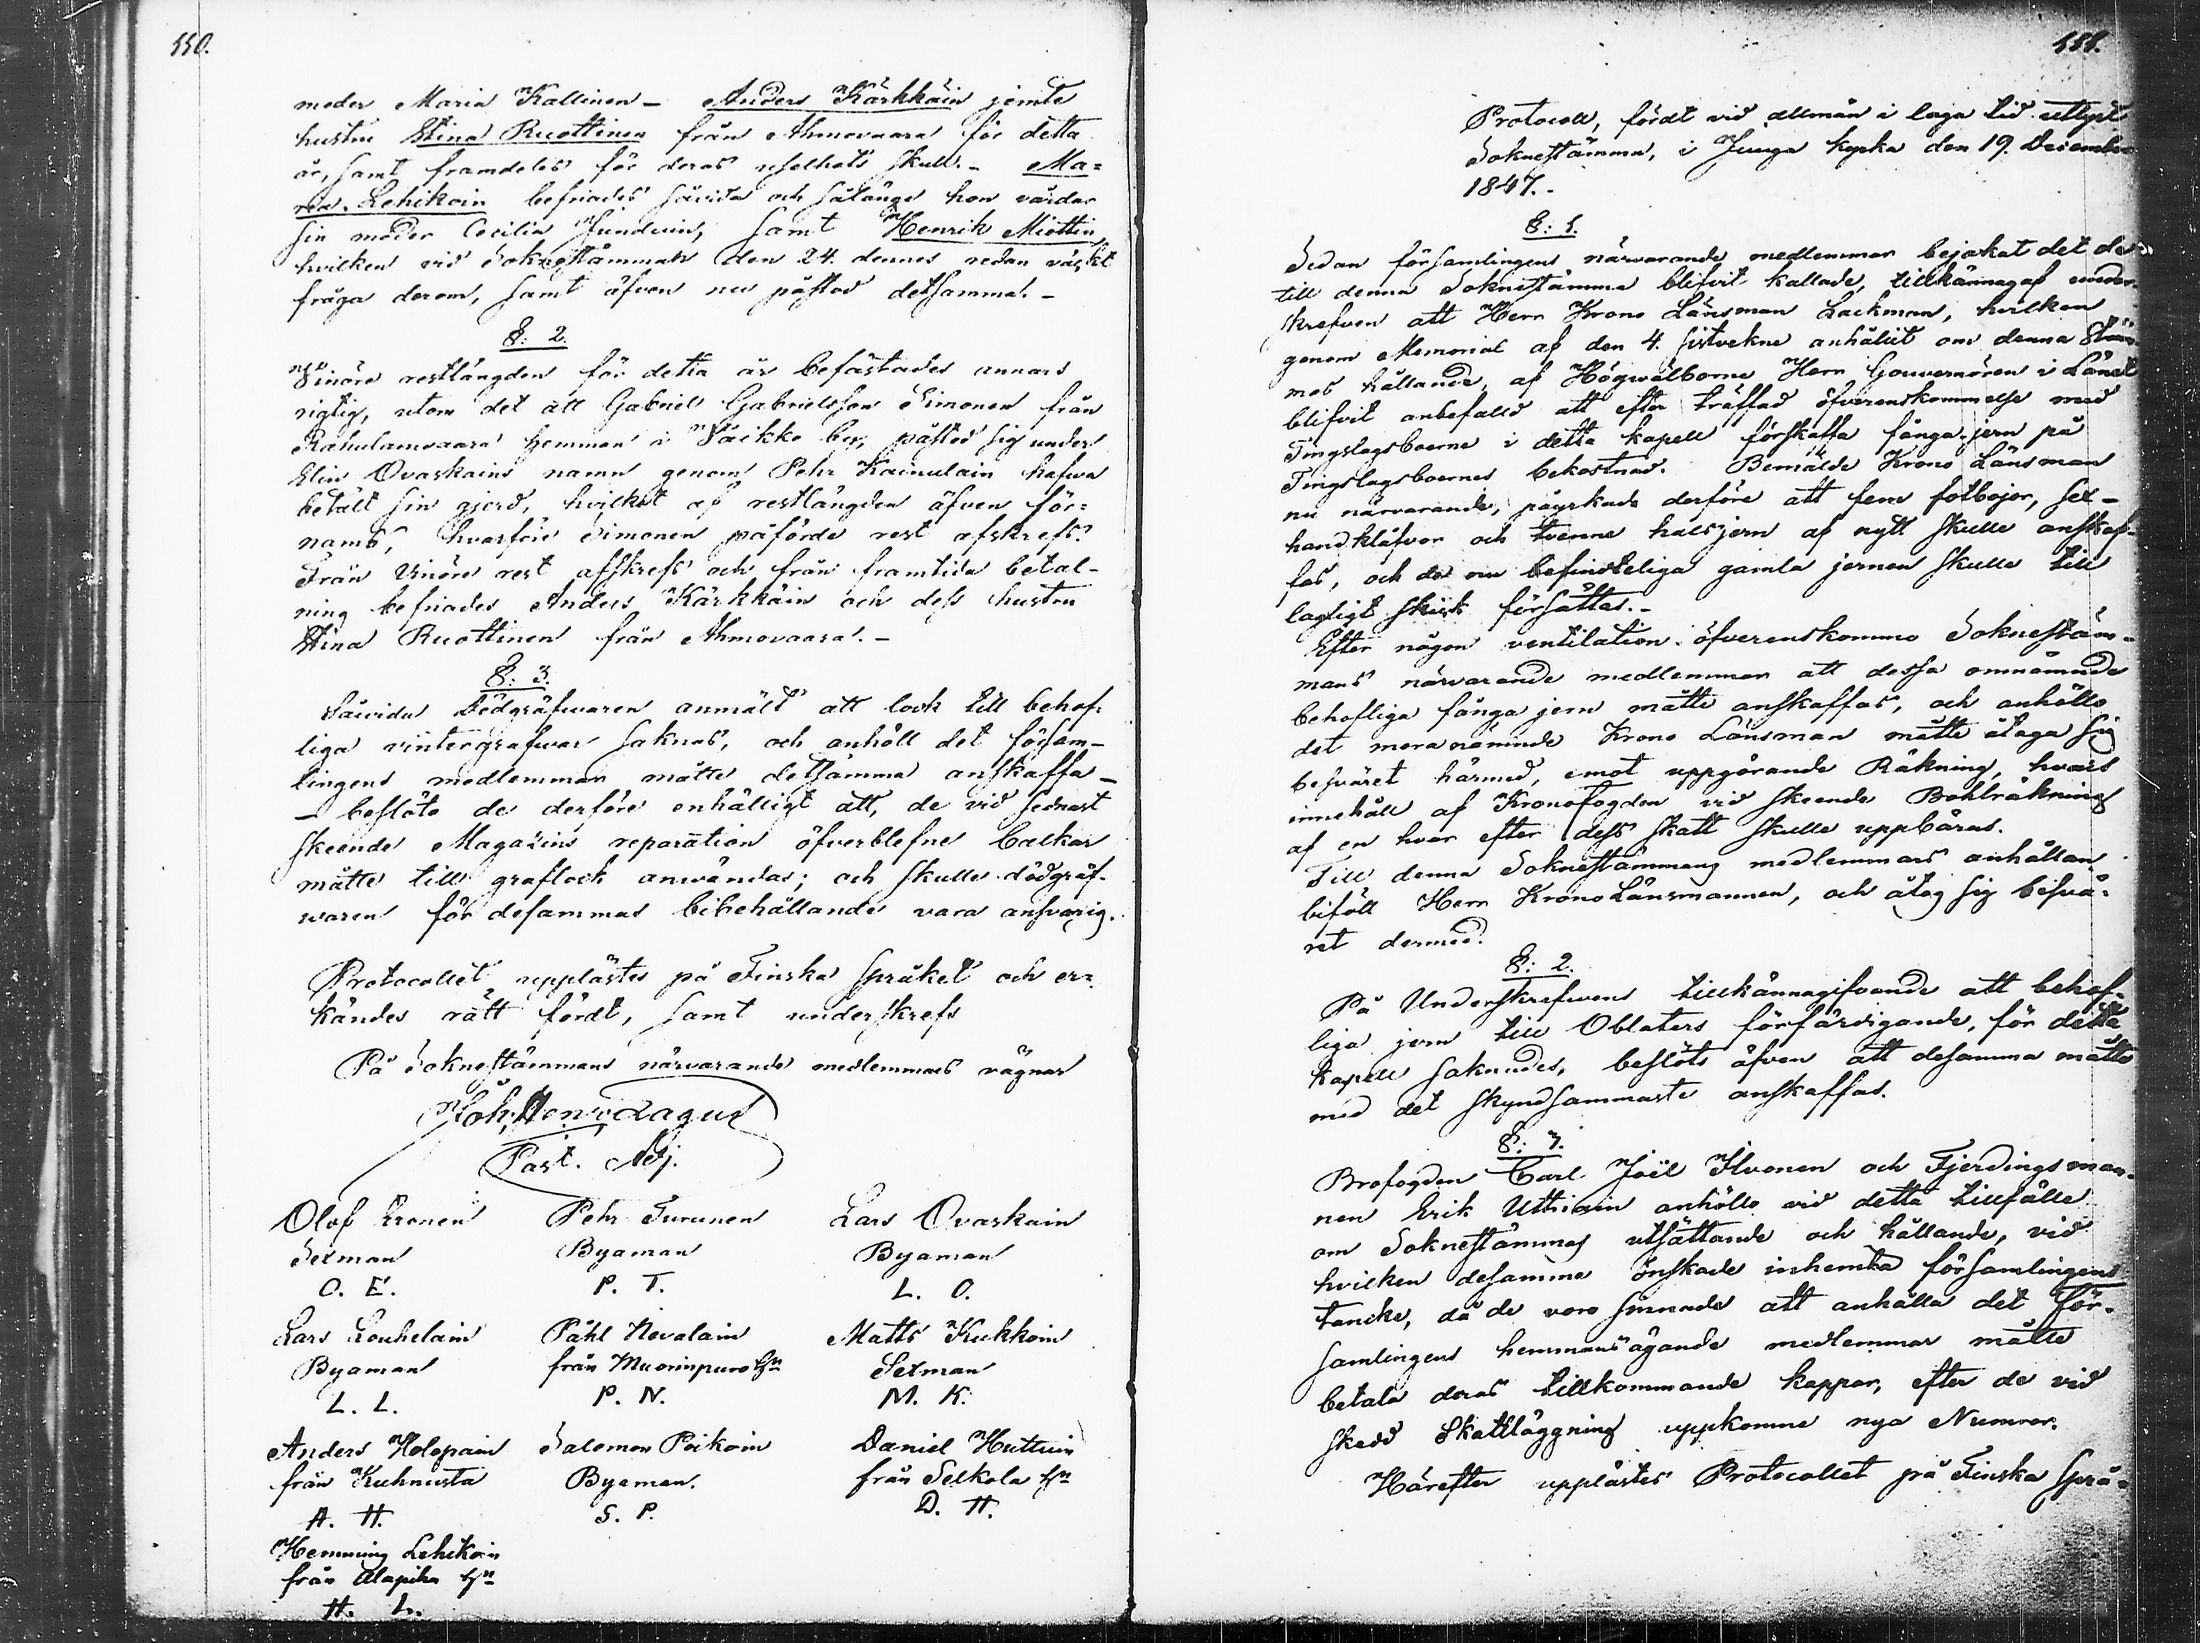 110.
moder Maria Kallinen – Anders Kärkkäin jemte
hustru Stina Ruottinen från Ahmovaara för detta
år, samt framdeles för deras uselhets skull. – Ma=
ria Lehikoin befriades såvida och sålänge hon vårdar
sin moder Cecilia samt Henrik Miettin,
hvilken vid Soknestämman den 24. dennes redan väckt
fråga derom, samt äfven nu påstod detsamma. –
§: 2.
restlängden för detta år befästades annars
rigtig, utom det att Gabriel Gabrielsson Simonen från
Rahulanvaara hemman i by, påstod sig under
Elin Ovaskains namn genom Pehr Kainulain hafva
betalt sin gjerd, hvilket af restlängden äfven för=
nams, hvarföre Simonen påförde rest afskrefs.
Från rest afskrefs och från framtida betal-
ning befriades Anders Kärkkäin och dess hustru
Stina Ruottinen från Ahmovaara. –
§: 3.
Såvida Dödgräfwaren anmält att lock till behof-
liga vintergrafwar saknas, och anhöll det försam-
lingens medlemmar måtte detsamma anskaffa –
– beslöto de derföre enhälligt att, de vid sednast
skeende Magazins reparation öfverblefne balkar
måtte till graflock användas; och skulle dödgräf-
waren för desammas bibehållande vara ansvarig.
Protocollet upplästes på Finska språket och er=
kändes rätt fördt, samt underskrefs
På Soknestämmans närvarande medlemmars vägnar
Joh. Henr. Lagus
Past. Adj.
Olof Eronen Pehr Turunen Lars Ovaskain
Sexman Byaman Byaman
O. E. P. T. L. O.
Lars Louhelain Påhl Nevalain Matts Kukkoin
Byaman från Muorinpuro hn Sexman
L. L. P. N. M. K.
Anders Holopain Salomon Poikoin Daniel Huttuin
från Kuhnusta Byaman. från Selkola hn
A. H. S. P. D. H.
Hemming Lehikoin
från Alapiha hn
H. L.
111.
Protocoll, fördt vid allmän i laga tid utlyst
Soknestämma, i Juuga kyrka den 19. December
1847. –
§: 1.
Sedan församlingens närvarande medlemmar bejakat det de
till denna Soknestämma blifvit kallade, tillkännagaf under-
skrefven att Herr Krono Länsman Lackman, hvilken
genom Memorial af den 4. sistvekne anhållit om denna Stäm-
mos hållande, af Högwälborne Herr Gouverneuren i Länet
blifvit anbefalld att efter träffad öfverenskommelse med
Tingslagsboerne i detta kapell förskaffa fånga jern på
Tingslagsboernes bekostnad. Bemälde Krono Länsman
nu närvarande, påyrkade derföre att fem fotbojor, sex –
handklåfvor och tvenne halsjern af nytt skulle anskaf-
fas, och de nu befinteliga gamla jernen skulle till
lagligt skick försättas. –
Efter någon ventilation öfverenskommo Soknestäm-
mans närvarande medlemmar att dessa omnämnde
behofliga fånga jern måtte anskaffas, och anhöllo
det meranämnde Krono Länsman måtte åtaga sig
besväret härmed, emot uppgörande Räkning, hvars
innehåll af Kronofogden vid skeende Bohlräkning
af en hvar efter dess skatt skulle uppbäras.
Till denna Soknestämmans medlemmars anhållan
biföll Herr Krono Länsmannen, och åtog sig besvä-
ret dermed.
§: 2.
På Underskrefvens tillkännagifvande att behof-
liga jern till Oblaters förfärdigande, för detta
kapell saknades, beslöts äfven att desamma måtte
med det skyndsammaste anskaffas.
§: 3.
Brofogden Carl Joël Ilvonen och Fjerdingsman-
nen Erik Uttriain anhöllo vid detta tillfälle
om Soknestämmas utsättande och hållande, vid
hvilken desamme önskade inhemta församlingens
tancke, då de voro sinnade att anhålla det för-
samlingens hemmansägande medlemmar måtte
betala deras tillkommande kappar, efter de vid
skedd Skattläggning uppkomne nya Numror.
Härefter upplästes Protocollet på Finska Språ-